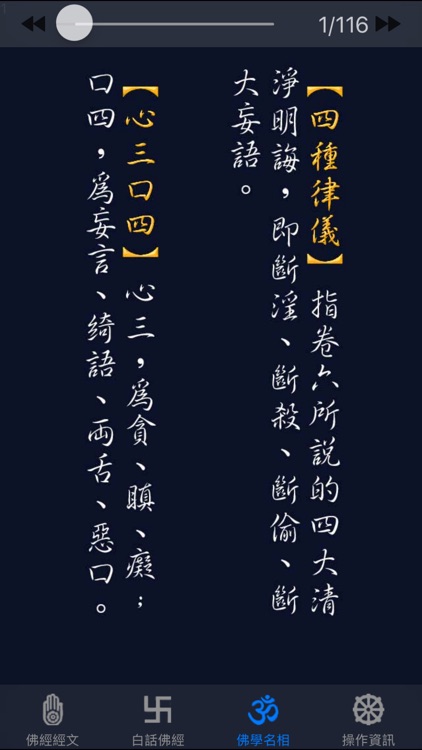 1/116
【四種律儀】指卷六所說的四大清
淨明誨，即斷淫、斷殺、斷偷、斷
大妄語。
【心三口四】心三，為貪、瞋、癡；
口四，為妄言、綺語、兩舌、惡口。
佛經經文
白話佛經
佛學名相
操作資訊